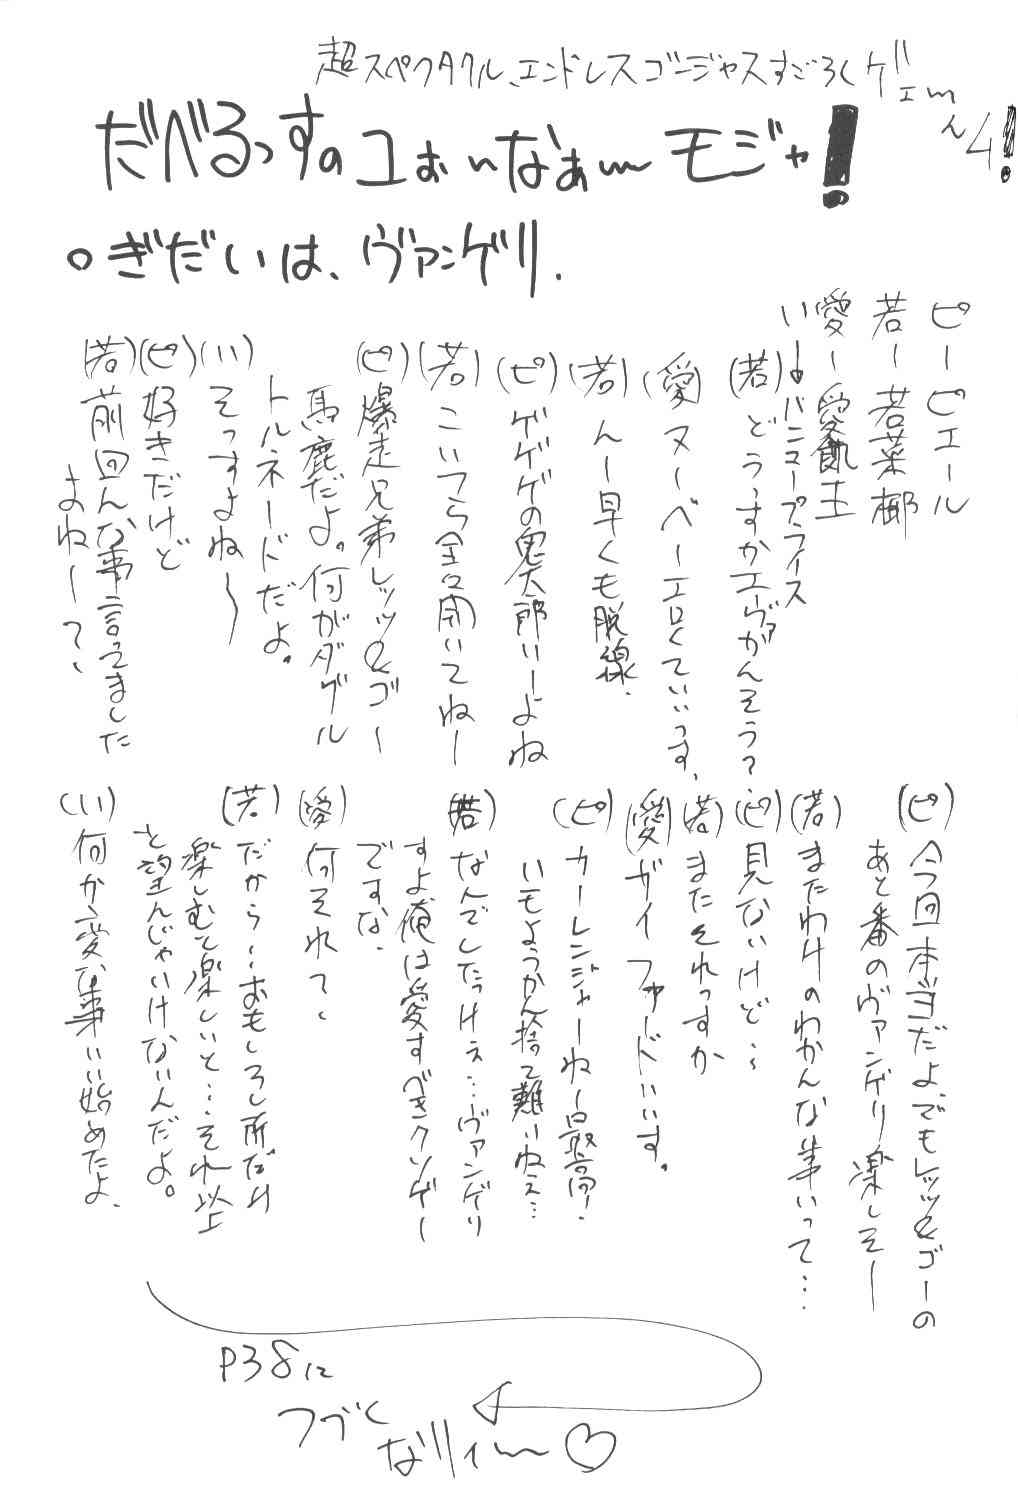 超スペクタクル、エンドレスゴージャスすごろくゲェm
ん4!
だべるっすのユぉぃなぁーモジャ!
○ぎだいは、ヴァンゲリ.
ピーピエール
若ー若菜椰
愛ー愛飢土
い→バニープライス
(若)どうすかエーヴァがんそう?
(愛)ヌーベーエロくていいっす、
(若)んー早くも脱線.
(ピ)ゲゲゲの鬼太郎いーよね
(若)こいつら全然聞いてねー
(ピ)爆走兄弟レッツ&ゴー
馬鹿だよ。何がダブル
トルネードだよ。
(い)そっすよね〜
(ピ)好きだけど
(若)前回んな事言ってました
よねーて、
(ピ)今回本当だよ、でもレッツ&ゴーの
あと番のヴァンゲリ楽しそー
(若)またわけのわかんな事いって…
(ピ)見ないけど…
(若)またそれっすか
(愛)ガイファードいいっす。
(ピ)カーレンジャーねー最高!
いもようかん捨て難いねぇ…
(若)なんでしたっけぇ…ヴァンゲリ
すよ俺は愛すべきクソゲー
ですな.
(愛)何それて、
(若)だから…おもしろし所だけ
楽しむと楽しいと…それ以上
と望んじゃいけないんだよ。
(い)何か変な事いい始めたよ、
P38に
つづく
なりィー♡